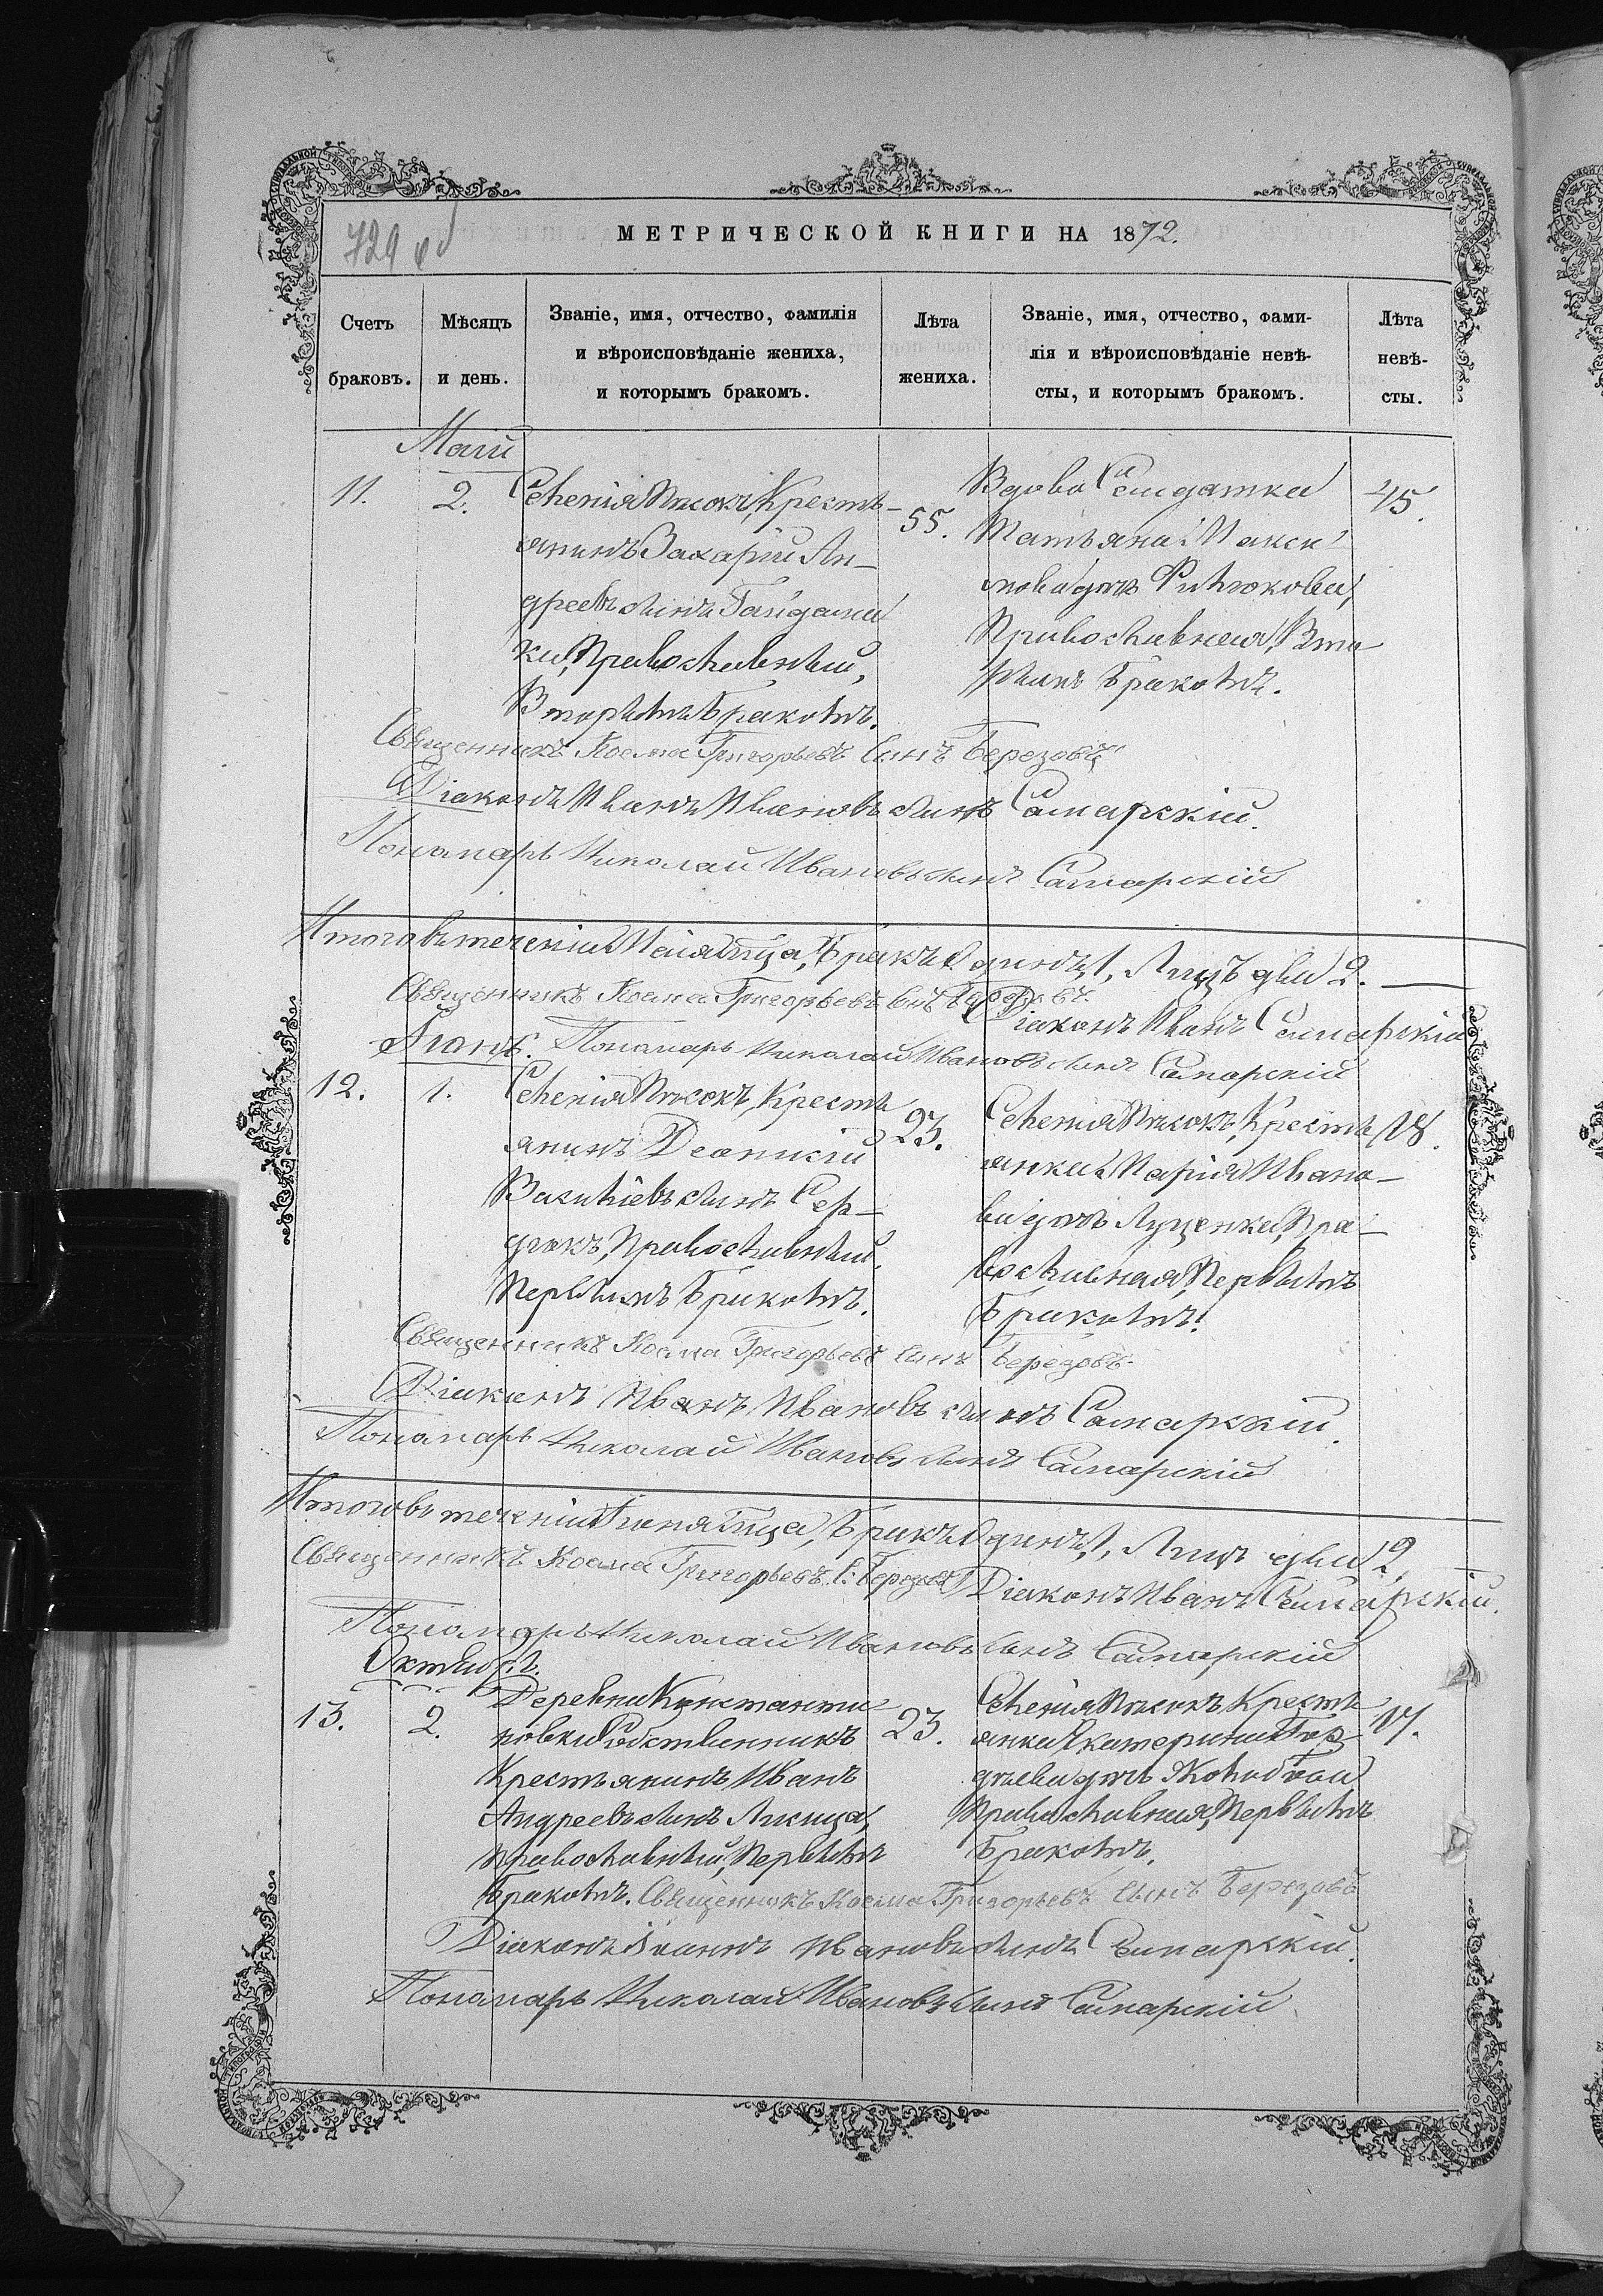 729 об
МЕТРИЧЕСКОЙ КНИГИ НА 1872.
Счетъ браковъ.
Мѣсяцъ и день.
Званіе, имя, отчество, фамилія
и вѣроисповѣданіе жениха,
и которымъ бракомъ.
Лѣта жениха.
Званіе, имя, отчество, фами-
лія и вѣроисповѣданіе невѣ-
сты, и которымъ бракомъ.
Лѣта невѣ-
сты.
Май
11.
2.
Селенія Пѣсокъ, Кресть-
янинъ Захарій Ан-
дреевъ сынъ Гайдама
ка, Православный,
Вторымъ бракомъ.
55.
Вдова Солдатка
Татьяна Макси
мова дочь
Православная, Вто
рымъ бракомъ.
45.
Священникъ Косма Григорьевъ Сынъ Березовъ
Діаконъ Иванъ Ивановъ сынъ Самарскій.
Пономарь Николай Ивановъ сынъ Самарскій
Итого въ теченіи Мая м-ца, Бракъ Одинъ, 1, Лицъ два 2.
Священникъ Косма Григорьевъ С. Березовъ.
Діаконъ Иванъ Самарскій
Пономарь Николай Ивановъ сынъ Самарскій
Іюнь.
12.
1.
Селенія Пѣсокъ, Кресть
янинъ Діонисій
Васильевъ сынъ Сер-
дюкъ, Православный,
Первымъ бракомъ.
23.
Селенія Пѣсокъ, Кресть
янка Марія Ивано-
ва дочь Луценкова, Пра-
вославная, Первымъ
Бракомъ.
18.
Священникъ Косма Григорьевъ Сынъ Березовъ.
Діаконъ Иванъ Ивановъ сынъ Самарскій.
Пономарь Николай Ивановъ сынъ Самарскій
Итого въ теченіи Іюня м-ца, Бракъ Одинъ, 1, Лицъ два 2,
Священникъ Косма Григорьевъ С. Березовъ
Діаконъ Иванъ Самарскій.
Пономарь Николай Ивановъ Сынъ Самарскій
Октябрь.
13.
2.
Деревни Константи
новки Собственникъ
Крестьянинъ Иванъ
Андреевъ сынъ
Православный, Первымъ
Бракомъ.
23.
Селенія Пѣсокъ, Кресть
янка Екатерина Гор-
дѣева дочь
Православная, Первымъ
Бракомъ.
17.
Священникъ Косма Григорьевъ Сынъ Березовъ
Діаконъ Іоаннъ Ивановъ сынъ Самарскій.
Пономарь Николай Ивановъ сынъ Самарскій